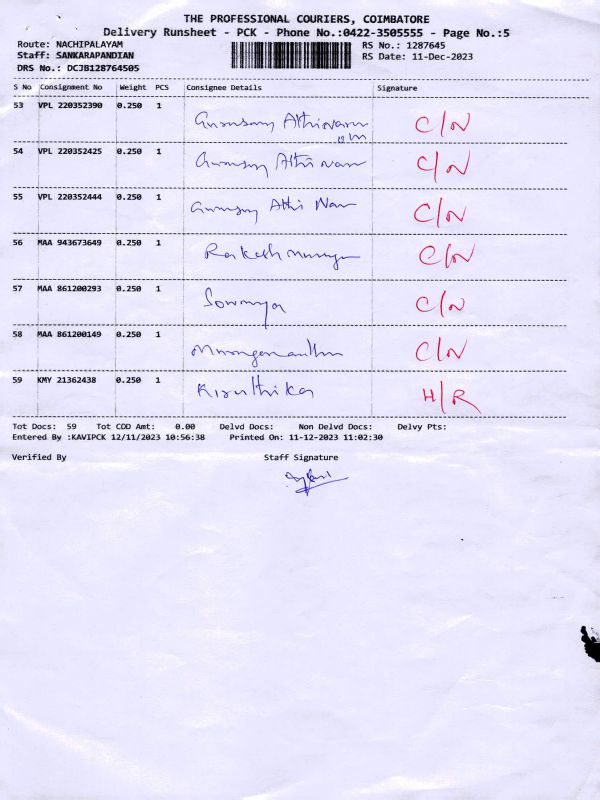 THE PROFESSIONAL COURIERS, COIMBATORE
Delivery Runsheet - PCK - Phone No.:0422-3505555 - Page No.:5
Route: NACHIPALAYAM RS No.: 1287645
Staff: SANKARAPANDIAN RS Date: 11-Dec-2023
DRS No.: DCJB128764505
S No Consignment No Weight PCS Consignee Details Signature
53 VPL 220352390 0.250 1 C/N
54 VPL 220352425 0.250 1 C/N
55 VPL 220352444 0.250 1 C/N
56 MAA 943673649 0.250 1 Rakesh C/N
57 MAA 861200293 0.250 1 Sowmya C/N
58 MAA 861200149 0.250 1 C/N
59 KMY 21362438 0.250 1 Kiruthika H/R
Tot Docs: 59 Tot COD Amt: 0.00 Delvd Docs: Non Delvd Docs: Delvy Pts:
Entered By :KAVIPCK 12/11/2023 10:56:38 Printed On: 11-12-2023 11:02:30
Verified By Staff Signature